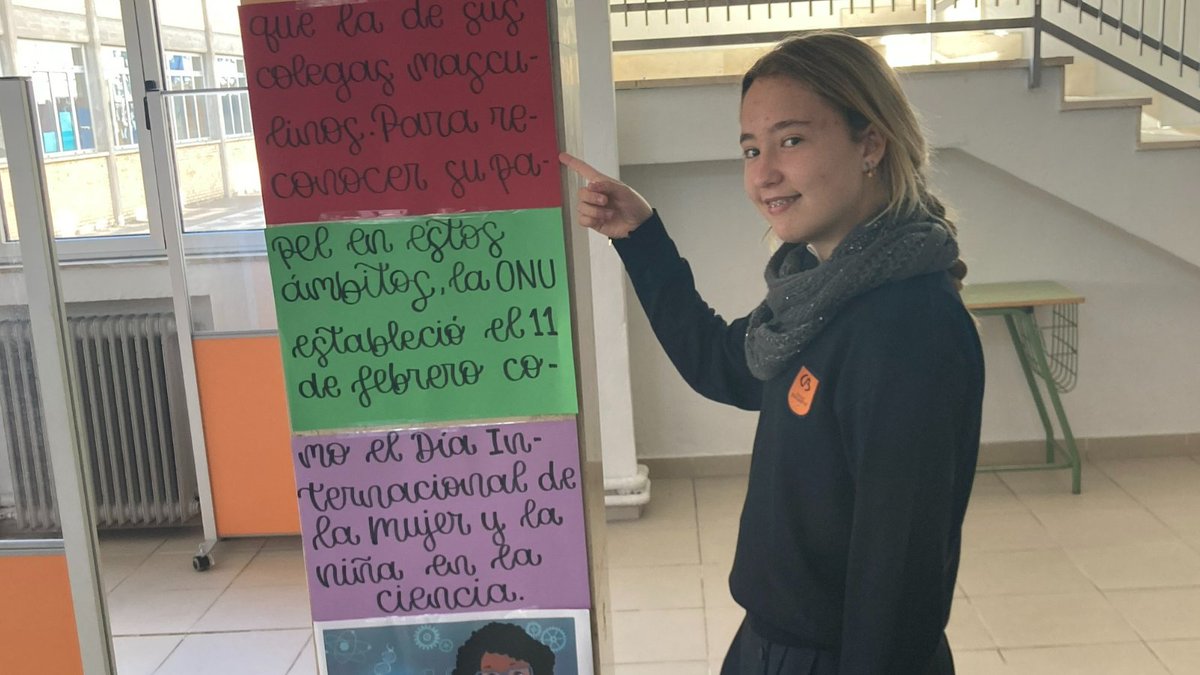 que la de sus
colegas mascu-
linos. Para re-
conocer su pa-
pel en estos
ámbitos, la ONU
estableció el 11
de febrero co-
mo el Día In-
ternacional de
la Mujer y la
niña en la
ciencia.